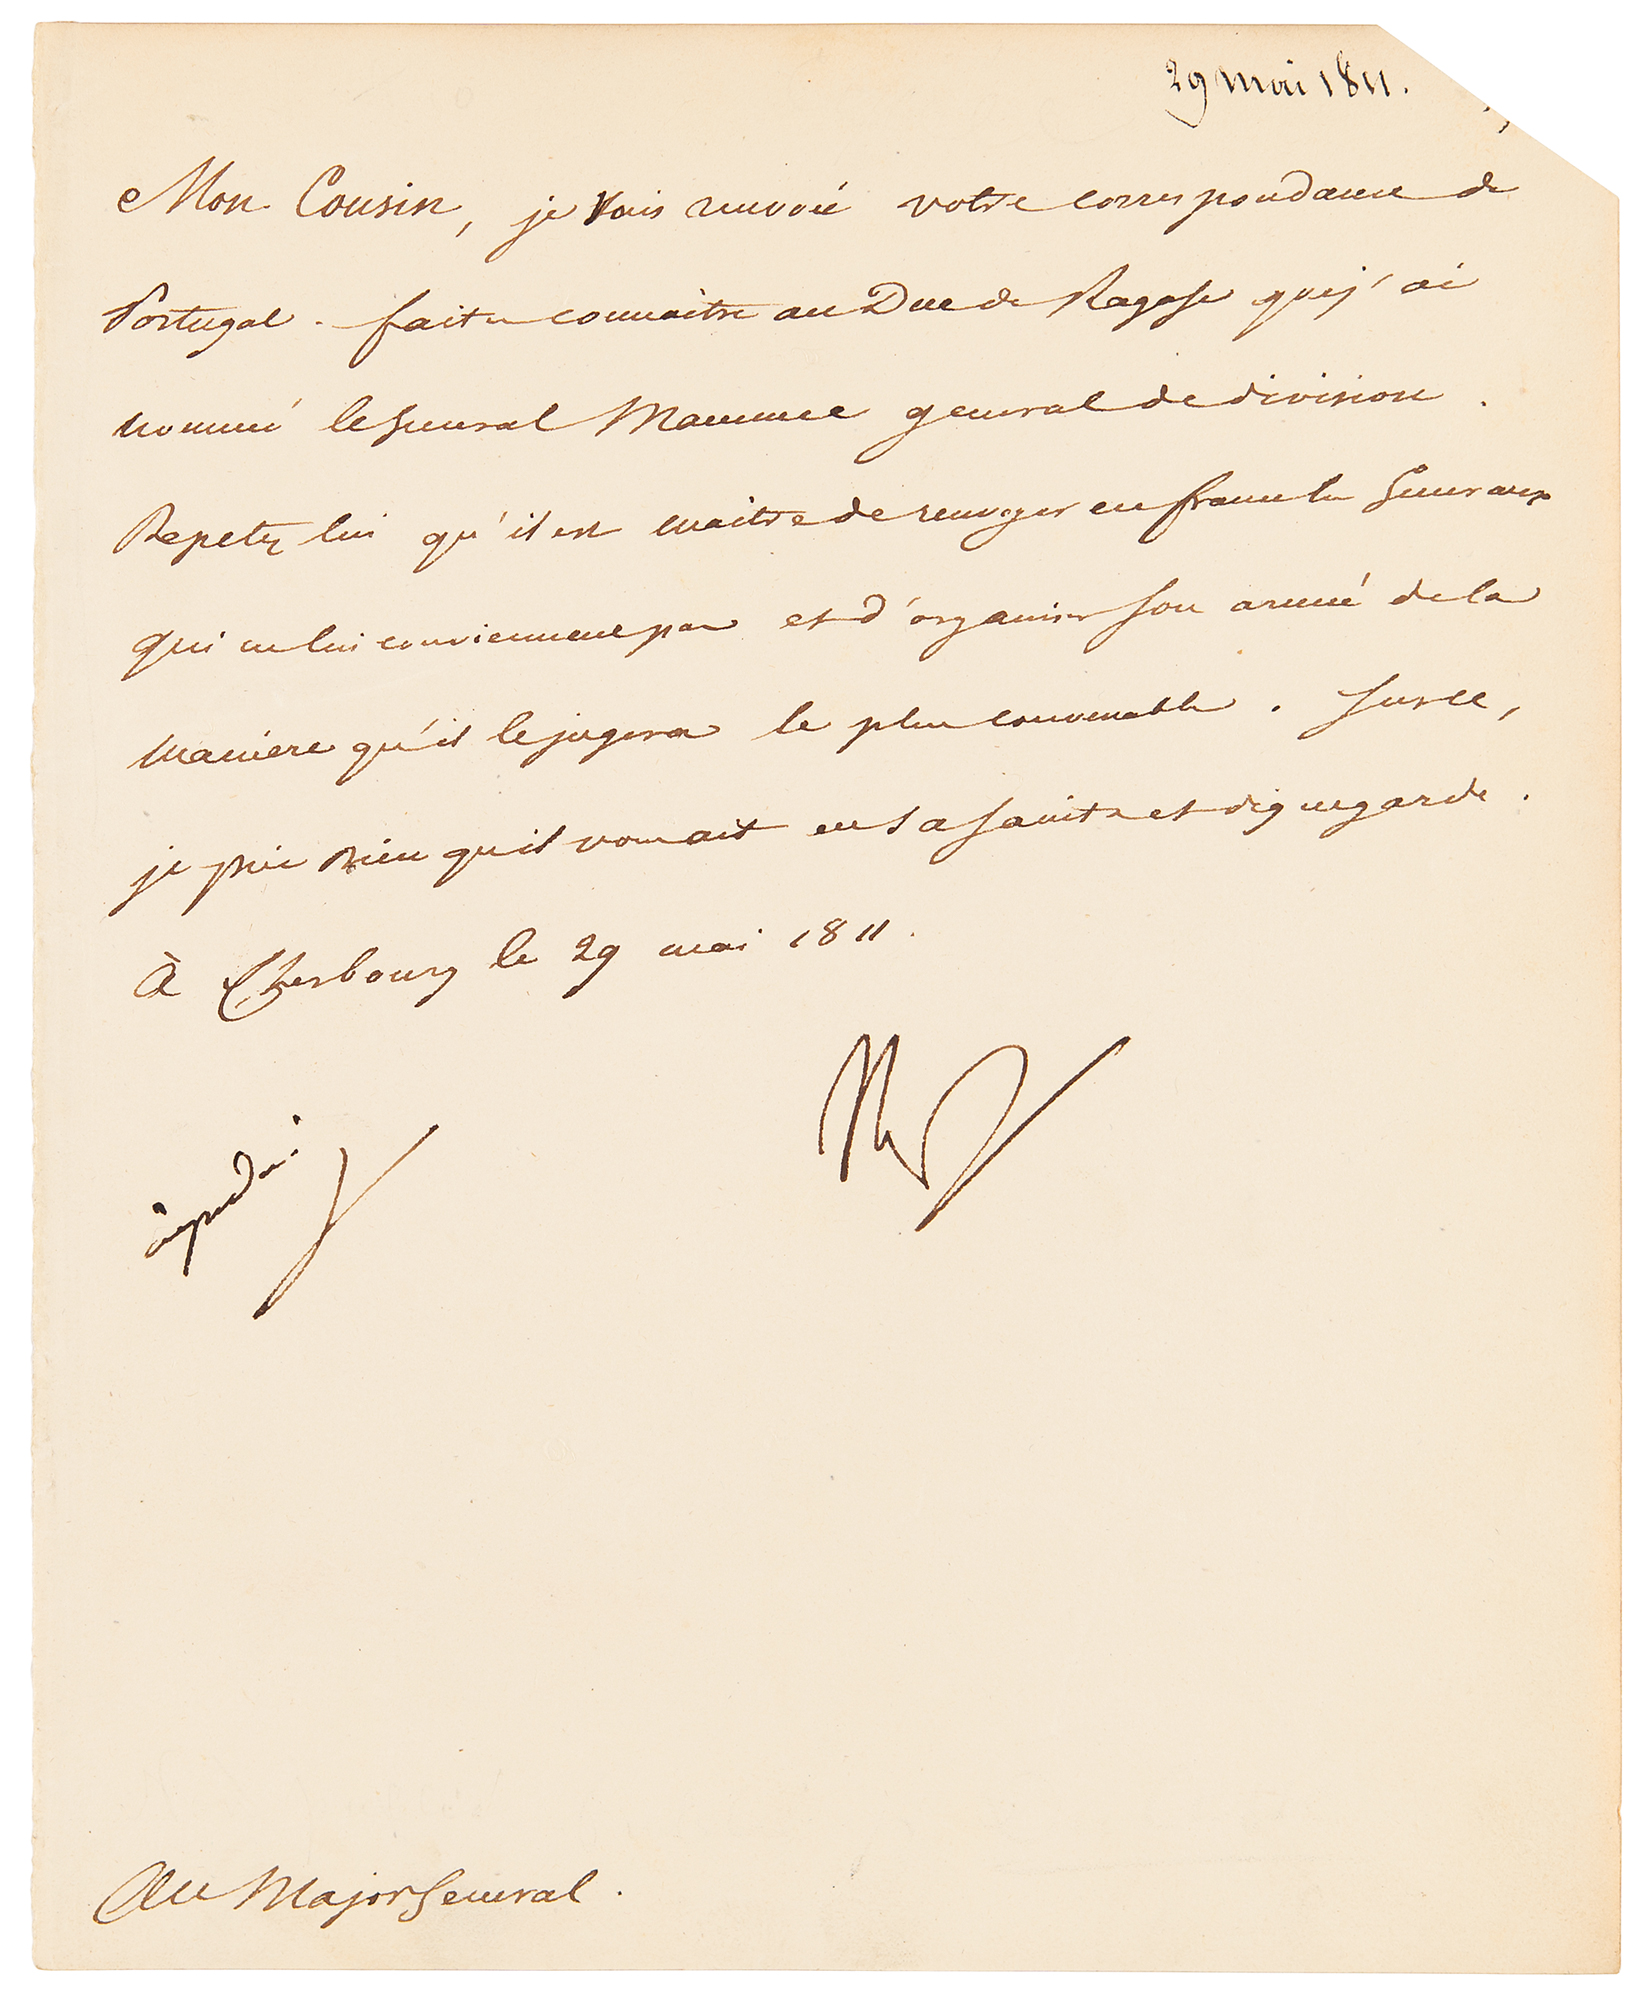 29 mai 1811.
Mon Cousin, je vous renvoie votre correspondance de
Portugal. faites connaitre au Duc de Raguse que j'ai
nommé le General Maucune general de division.
Repetez lui qu'il est maitre de renvoyer en france les Generaux
qui ne lui conviennent pas et d'organiser son armée de la
maniere qu'il le jugera le plus convenable. Sur ce,
je prie Dieu qu'il vous ait en sa sainte et digne garde.
À Cherbourg le 29 mai 1811.
Np
Au Major General.